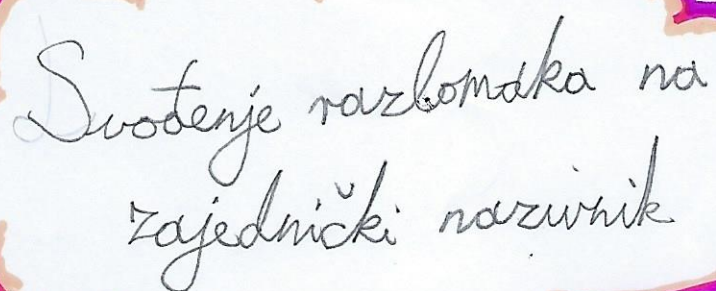 Svođenje razlomaka na
zajednički nazivnik